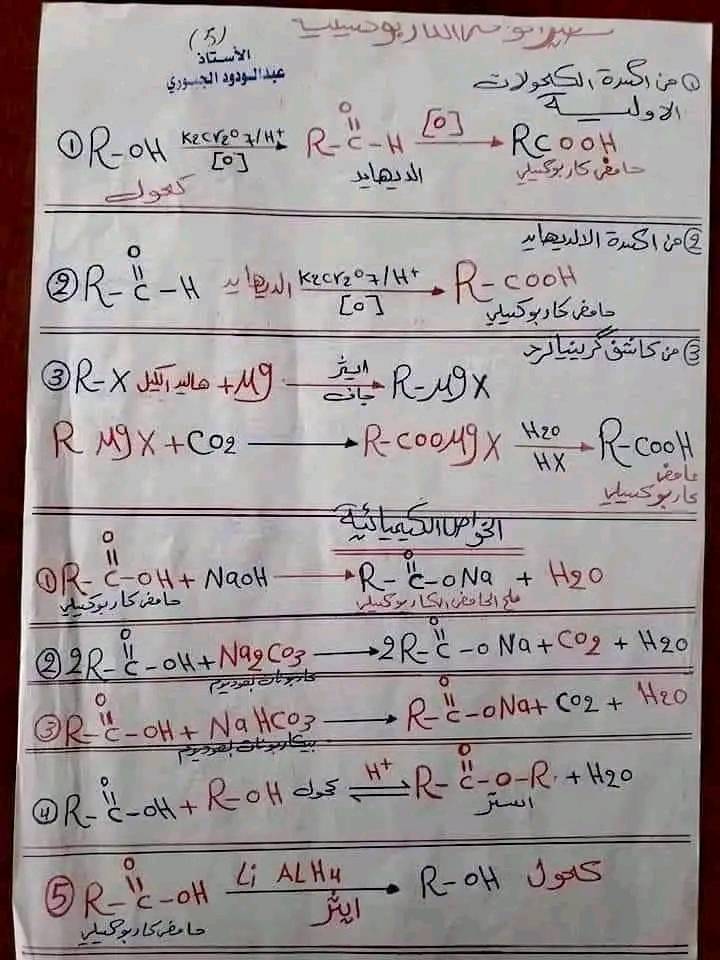 تحضير الحوامض الكاربوكسيلية
(5)
الأستاذ
عبدالودود الجبوري
① من اكسدة الكحولات
الاولية
① R-OH K2Cr2O7/H+ [O] → R-C(=O)-H [O] → RCOOH
كحول الديهايد حامض كاربوكسيلي
② من اكسدة الالديهايد
② R-C(=O)-H الديهايد K2Cr2O7/H+ [O] → R-COOH
حامض كاربوكسيلي
③ من كاشف گرينيارد
③ R-X هاليد الكيل + Mg ايثر جاف → R-MgX
R MgX + CO2 → R-COOMgX H2O HX → R-COOH
حامض
كاربوكسيلي
الخواص الكيميائية
① R-C(=O)-OH + NaOH → R-C(=O)-ONa + H2O
حامض كاربوكسيلي ملح الحامض الكاربوكسيلي
② 2R-C(=O)-OH + Na2CO3 → 2R-C(=O)-ONa + CO2 + H2O
كاربونات الصوديوم
③ R-C(=O)-OH + NaHCO3 → R-C(=O)-ONa + CO2 + H2O
بيكاربونات الصوديوم
④ R-C(=O)-OH + R-OH كحول H+ ⇌ R-C(=O)-O-R + H2O
استر
⑤ R-C(=O)-OH Li ALH4 ايثر → R-OH كحول
حامض كاربوكسيلي